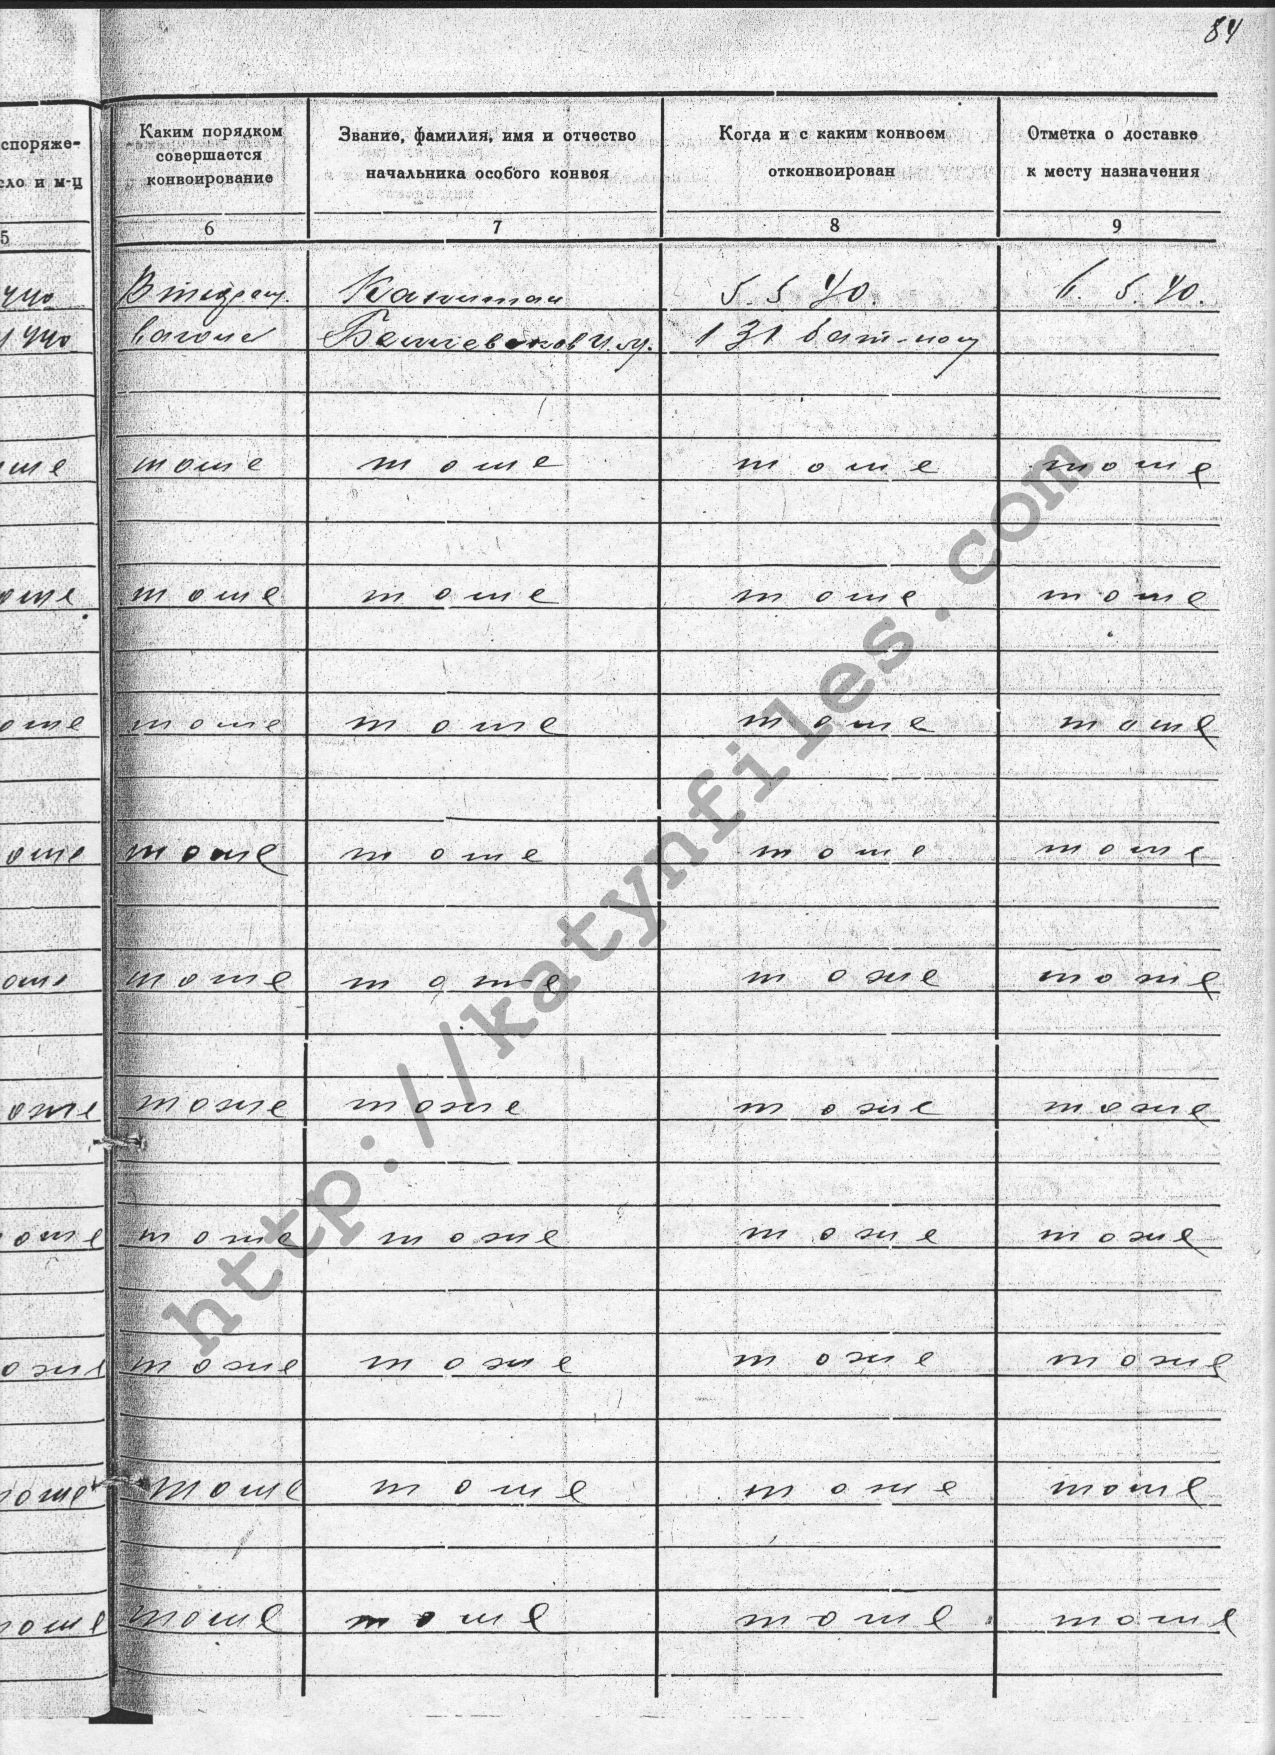 84
споряже-
сло и м-ц
5
Каким порядком
совершается
конвоирование
6
Звание, фамилия, имя и отчество
начальника особого конвоя
7
Когда и с каким конвоем
отконвоирован
8
Отметка о доставке
к месту назначения
9
Капитан 5.5.40. 6.5.40.
вагоне 131 бат-ном
тоже тоже тоже тоже
тоже тоже тоже тоже
тоже тоже тоже тоже
тоже тоже тоже тоже
тоже тоже тоже тоже
тоже тоже тоже тоже
тоже тоже тоже тоже
тоже тоже тоже тоже
тоже тоже тоже тоже
тоже тоже тоже тоже
http://katynfiles.com